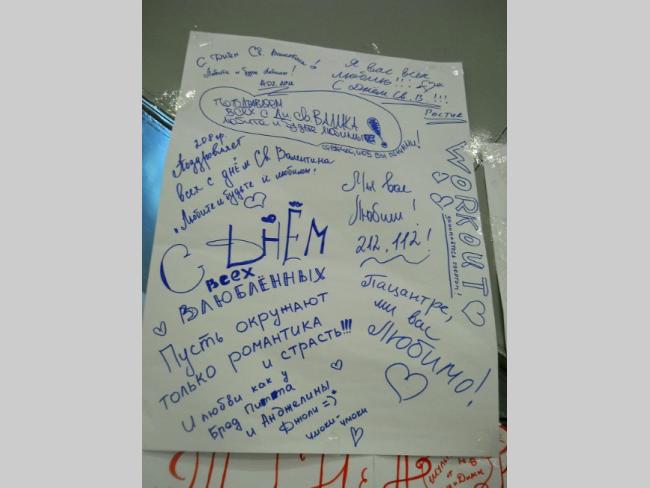 С Днём Св. Валентина!
Любите и будьте любимы!
14.02.2012
Я вас всех
люблю!!!
С Днём Св. В.!!!
Ростик
ПОЗДРАВЛЯЕМ
ВСЕХ С Дн. Св ВАЛИКА
ЛЮБИТЕ И БУДЬТЕ ЛЮБИМЫ!
208 гр.
Поздравляет
всех с днём Св Валентина
"Любите и будьте и любимы!
Мы вас
Любим!
212, 112!
WORKOUT
С ДНЁМ
всех
ВЛЮБЛЁННЫХ
Пусть окружают
только романтика
и страсть!!!
И любви как у
Брад Питта
и Анджелины
Джоли =)*
чмоки-чмоки
Пацантре,
ми вас
Любимо!